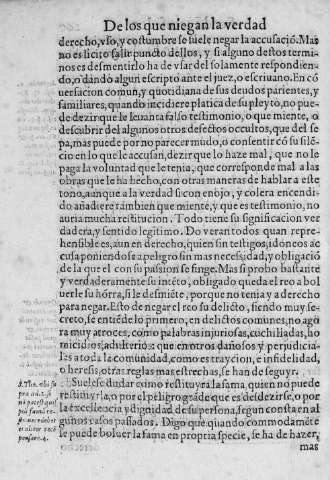 De los que niegan la verdad
derecho, vso, y costumbre se suele negar la accusaciõ. Mas
no es licito salir puncto dellos, y si alguno destos termi-
nos es desmentirlo ha de vsar del solamente respondien-
do, o dando algun escripto ante el juez, o escriuano. En cõ
uersacion comun, y quotidiana de sus deudos parientes, y
familiares, quando incidiere platica de su pleyto, no pue-
de dezir que le leuanta falso testimonio, o que miente, o
descubrir del algunos otros defectos occultos, que del se
pa, mas puede por no parecer mudo, o consentir cõ su silẽ-
cio en lo que le accusan, dezir que lo haze mal, que no le
paga la voluntad que le tenia, que corresponde mal a las
obras que le ha hecho, con otras maneras de hablar a este
tono, aunque a la verdad si con enojo, y colera encendi-
do añadiere tambien que miente, y que es testimonio, no
auria mucha restitucion. Todo tiene su significacion ver
dadera, y sentido legitimo. Do veran todos quan repre-
hensible es, aun en derecho, quien sin testigos, idoneos ac
cusa poniendose a peligro sin mas necesidad, y obligaciõ
de la que el con su passion se finge. Mas si probo bastante
y verdaderamente su intẽto, obligado queda el reo a bol
uerle su hõrra, si le desmiẽte, porque no tenia y a derecho
para negar. Esto de negar el reo su delicto, siendo muy se-
creto, se entiẽde lo primero, en delictos comunes, no ago
ra muy atroces, como palabras injuriosas, cuchilladas, ho
micidios, adulterios: que en otros dañosos y perjudicia-
les a toda la comunidad, como es traycion, e infidelidad,
o heresis, otras reglas mas estrechas, se han de seguyr.
Suelese dudar como restituyra la fama, quien no puede
restituyrla, o por el peligro grãde que es desdezirse, o por
la excellencia y dignidad de su persona, segun consta en al
gunos casos passados. Digo que quando commodamẽte
se puede boluer la fama en propria specie, se ha de hazer,
mas